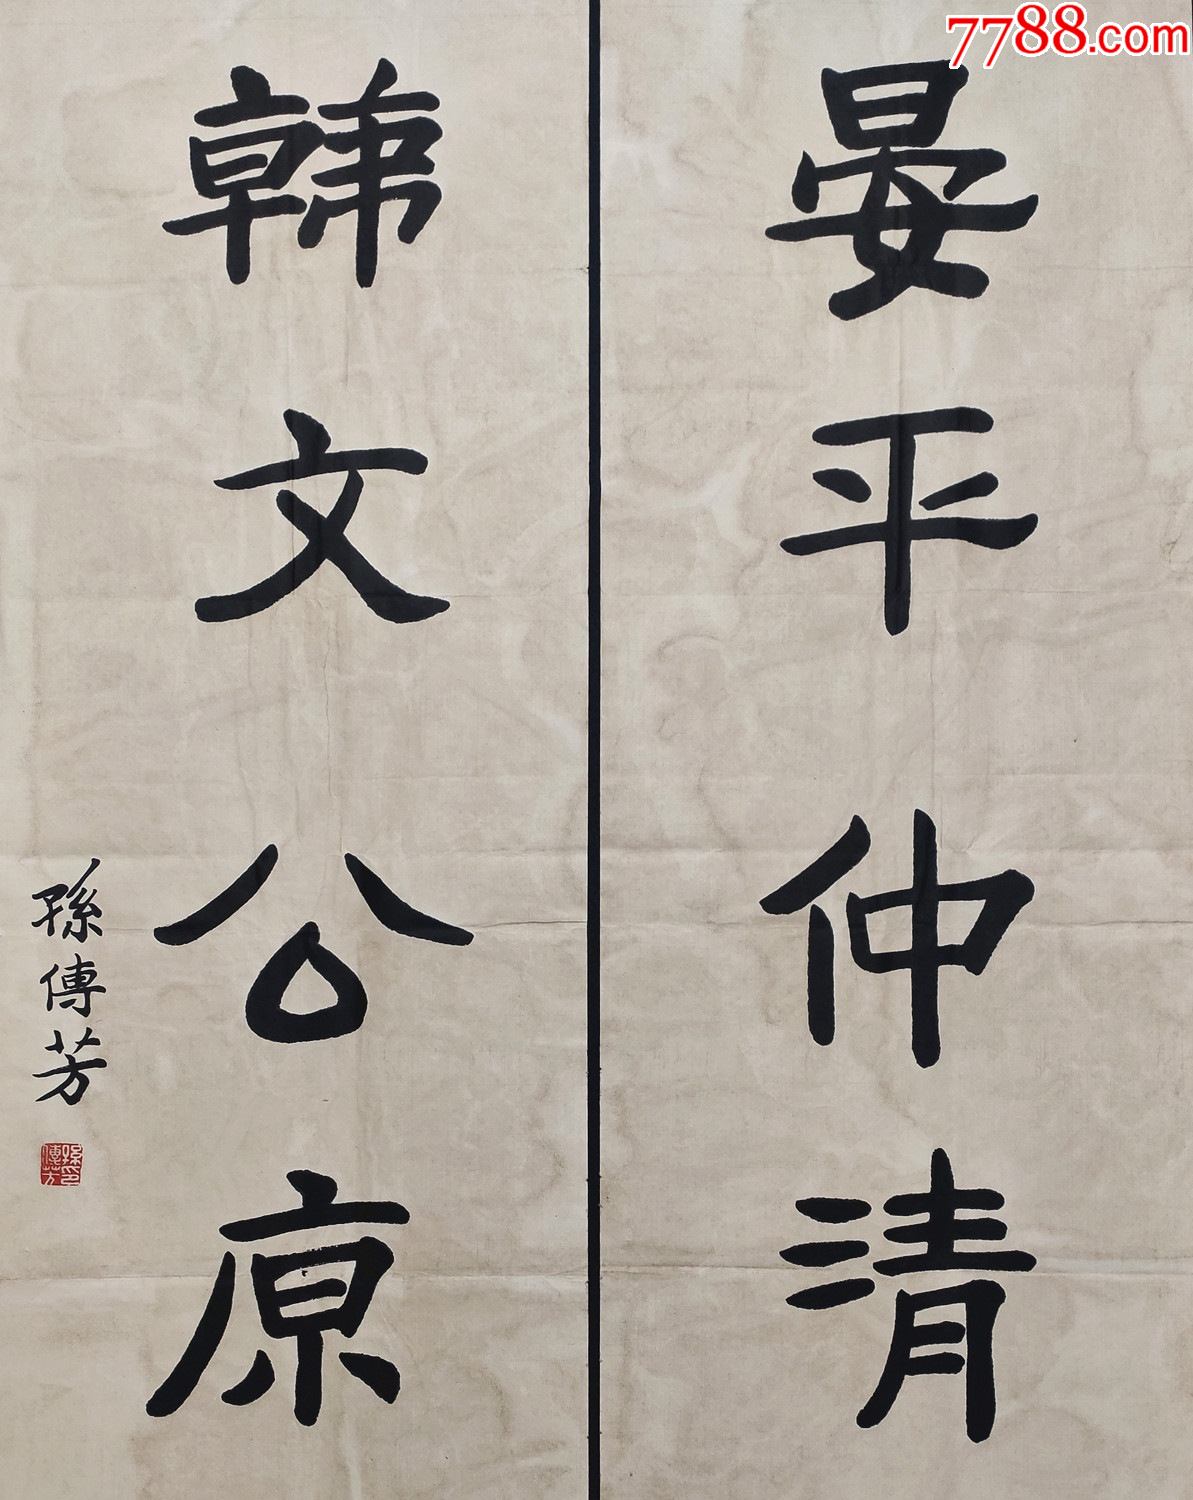 7788.com
晏平仲清
韩文公原
孫傳芳
孫傳芳印